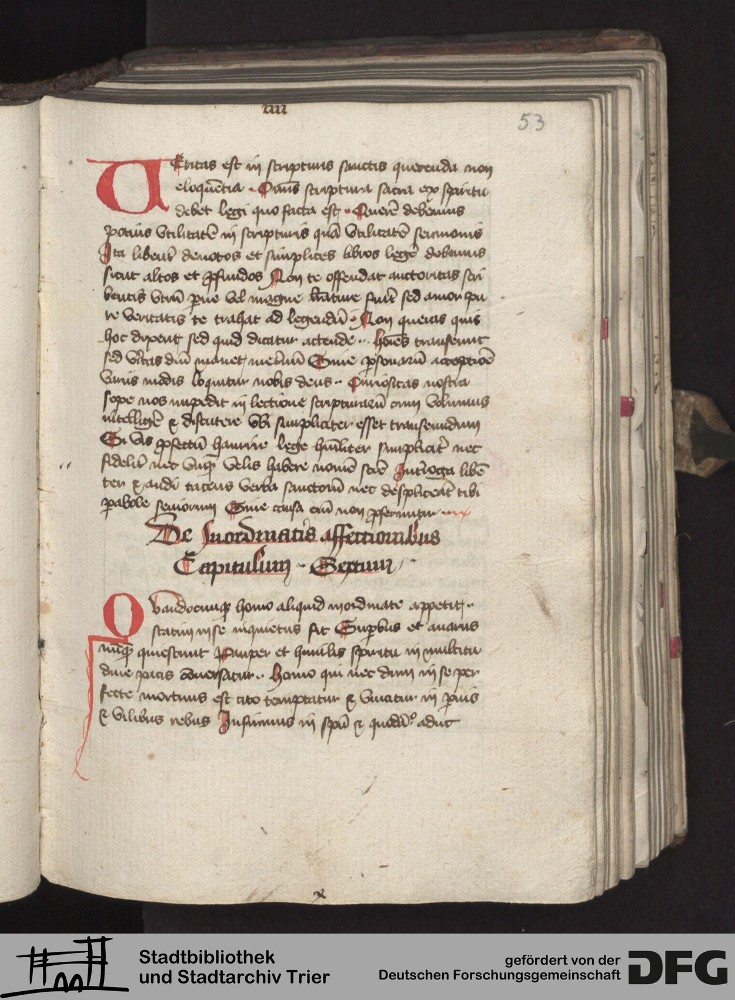 iiii
53
UEritas est in scripturis sanctis querenda non
eloquẽtia Omĩs scriptura sacra eo spiritu
debet legi quo facta est Querẽ debemus
potius Vtilitatẽ in scripturis quã Vtilitatẽ sermonis
Ita libent deuotos et simplices libros legẽ debemus
sicut altos et pfundos Non te offendat auctoritas scri
bentis vtrũ pue vel magne lrãture fuit sed amor pu
re veritatis te trahat ad legendũ Non queras quis
hoc dixerit sed quid dicatur attende hoĩes transeunt
sed vitas dnĩ manet metnũ Sine psonarũ acceptiõe
variis modis loquitur nobis deus Curiositas nostra
sepe nos impedit in lectione scripturarũ cum volumus
intelligẽ & discutere vbi simpliciter esset transeundum
Si vis pfectũ haurire lege hũiliter simplicit nec
fidelit nec vnq velis habere nomẽ sciẽ Int'roga libẽ
ter & audi tacens verba sanctorũ nec displiceãt tibi
pabole seniorum Sine causa enĩ non pferuntur
De Inordinatis affectionibus
Capitulum Sextum
QVandocunq homo aliquid inordinate appetit
statim in se inquietus fit Supbus et auarus
nũq quiescunt Pauper et humilis spiritu in multitu
dine pacis cõuersatur Homo qui nec dum in se per
fecte mortuus est cito temptatur & vincitur in puis
& vilibus rebus Infirmus in spũ & quodã° adhuc
Stadtbibliothek
und Stadtarchiv Trier
gefördert von der
Deutschen Forschungsgemeinschaft
DFG